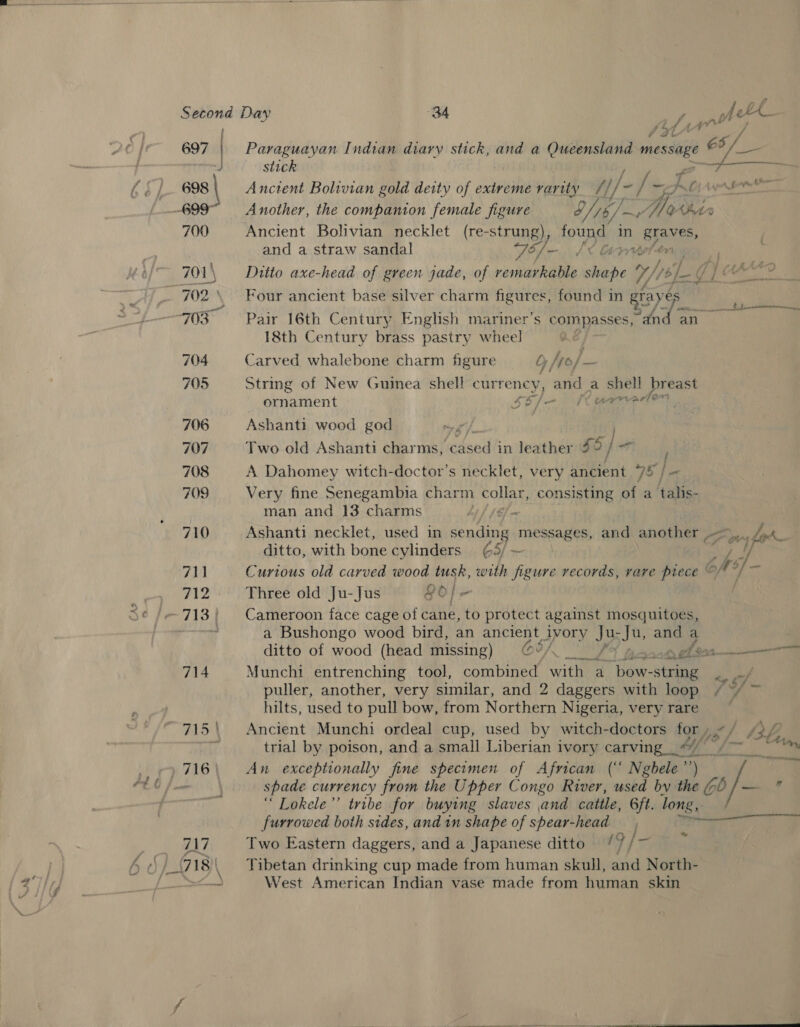 Second Day 34
697 Paraguayan Indian diary stick, and a Queensland message 65/-
stick
698 Ancient Bolivian gold deity of extreme rarity
699 Another, the companion female figure
700 Ancient Bolivian necklet (re-strung), found in graves,
and a straw sandal 75/-
701 Ditto axe-head of green jade, of remarkable shape
702 Four ancient base silver charm figures, found in graves
703 Pair 16th Century English mariner's compasses, and an
18th Century brass pastry wheel
704 Carved whalebone charm figure
705 String of New Guinea shell currency, and a shell breast
ornament 55/-
706 Ashanti wood god
707 Two old Ashanti charms, cased in leather 55/-
708 A Dahomey witch-doctor's necklet, very ancient 75/-
709 Very fine Senegambia charm collar, consisting of a talis-
man and 13 charms
710 Ashanti necklet, used in sending messages, and another
ditto, with bone cylinders 65/-
711 Curious old carved wood tusk, with figure records, rare piece
712 Three old Ju-Jus
713 Cameroon face cage of cane, to protect against mosquitoes,
a Bushongo wood bird, an ancient ivory Ju-Ju, and a
ditto of wood (head missing)
714 Munchi entrenching tool, combined with a bow-string
puller, another, very similar, and 2 daggers with loop
hilts, used to pull bow, from Northern Nigeria, very rare
715 Ancient Munchi ordeal cup, used by witch-doctors for
trial by poison, and a small Liberian ivory carving
716 An exceptionally fine specimen of African (“ Ngbele ”)
spade currency from the Upper Congo River, used by the
“ Lokele ” tribe for buying slaves and cattle, 6ft. long,
furrowed both sides, and in shape of spear-head
717 Two Eastern daggers, and a Japanese ditto
718 Tibetan drinking cup made from human skull, and North-
West American Indian vase made from human skin